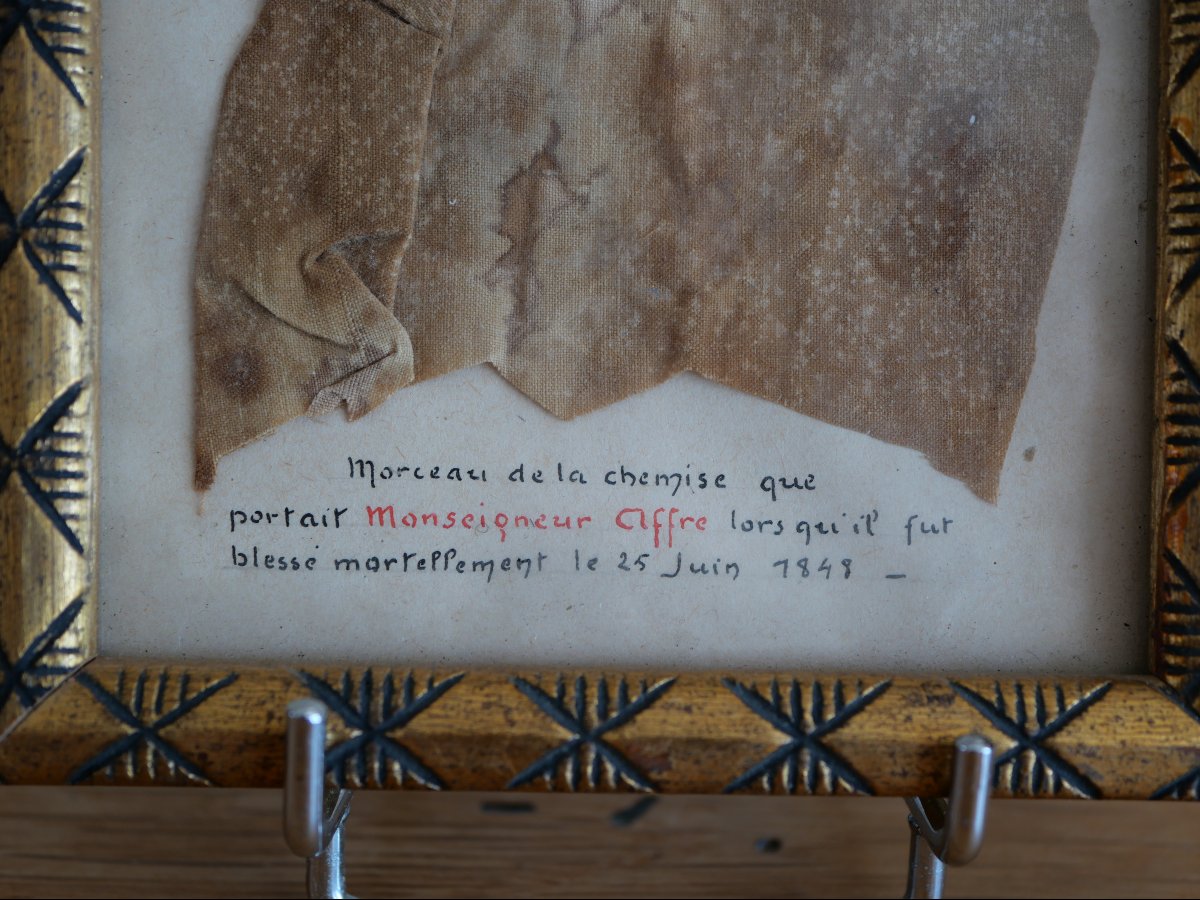 Morceau de la chemise que
portait Monseigneur Affre lorsqu'il fut
blessé mortellement le 25 Juin 1848 _